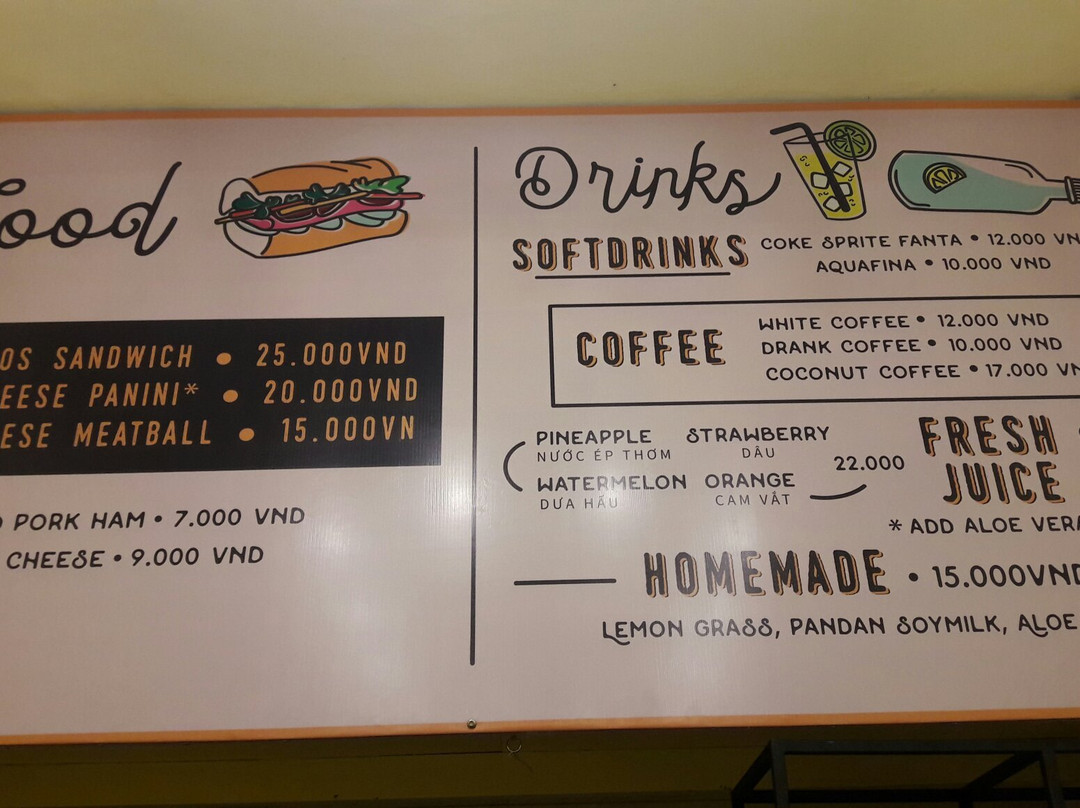 Food
OS SANDWICH • 25.000VND
EESE PANINI* • 20.000VND
ESE MEATBALL • 15.000VN
PORK HAM • 7.000 VND
CHEESE • 9.000 VND
Drinks
SOFTDRINKS
COKE SPRITE FANTA • 12.000 VN
AQUAFINA • 10.000 VND
COFFEE
WHITE COFFEE • 12.000 VND
DRANK COFFEE • 10.000 VND
COCONUT COFFEE • 17.000 VN
PINEAPPLE STRAWBERRY
NƯỚC ÉP THƠM DÂU
WATERMELON ORANGE
DƯA HẤU CAM VẮT
22.000
FRESH
JUICE
* ADD ALOE VERA
HOMEMADE • 15.000VND
LEMON GRASS, PANDAN SOYMILK, ALOE